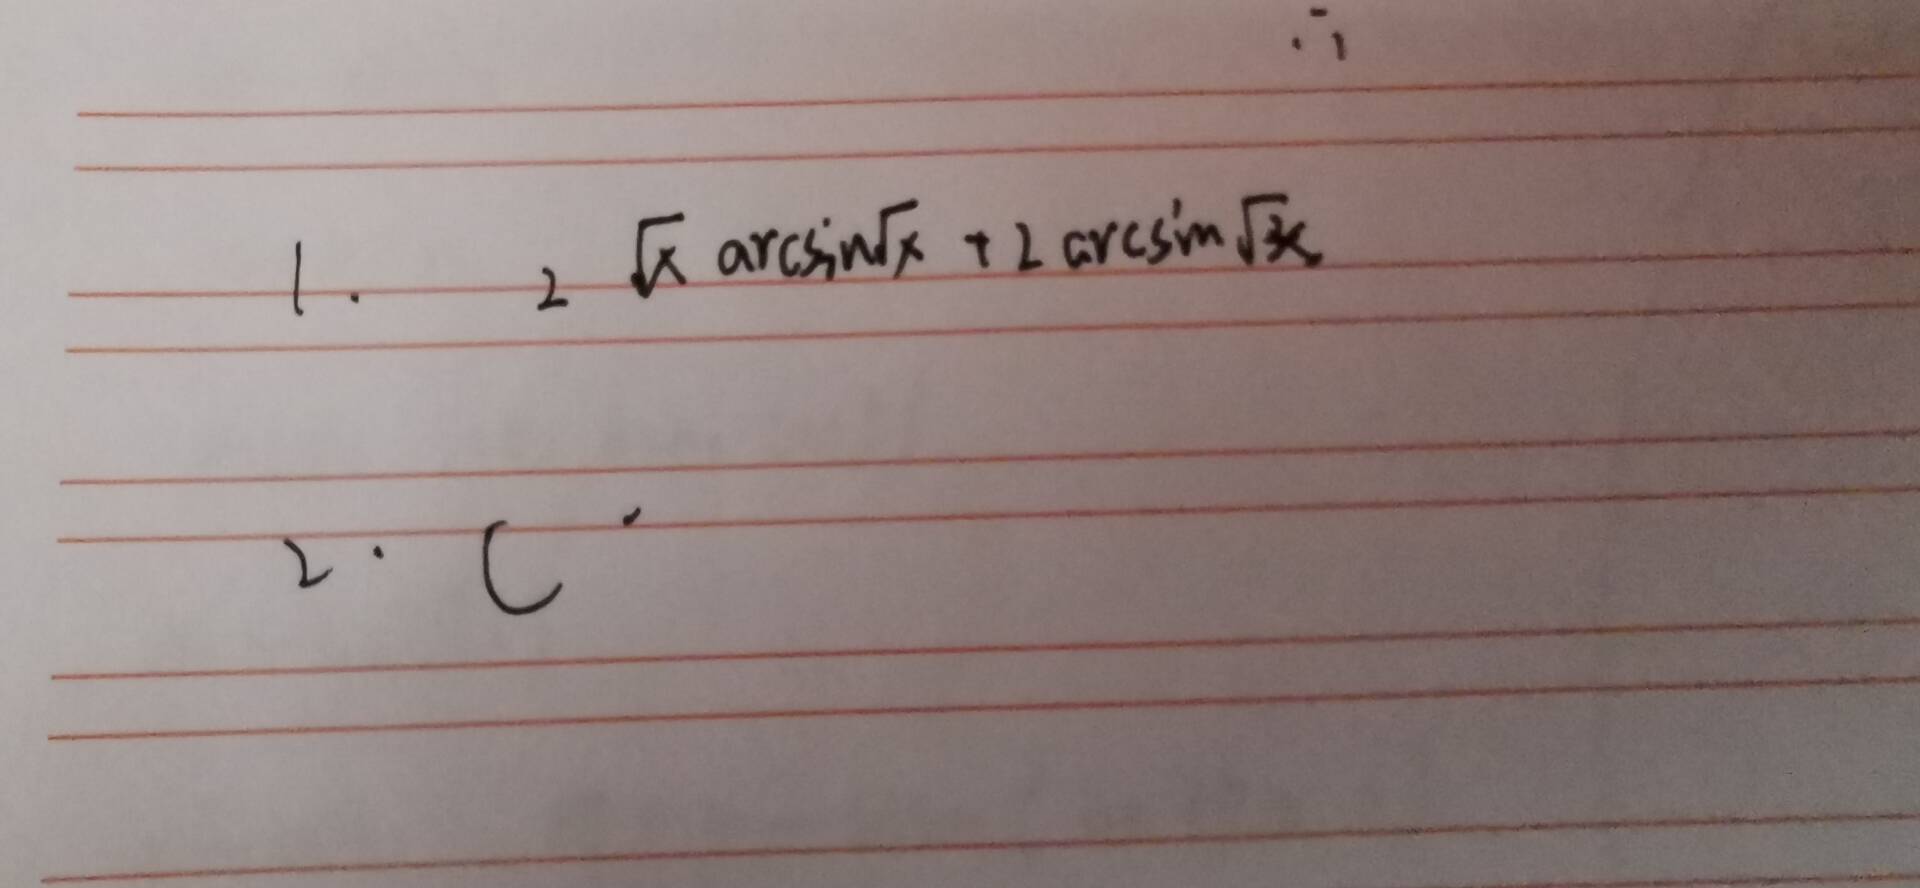 1. 2 √x arcsin√x + 2 arcsin √x
2. (